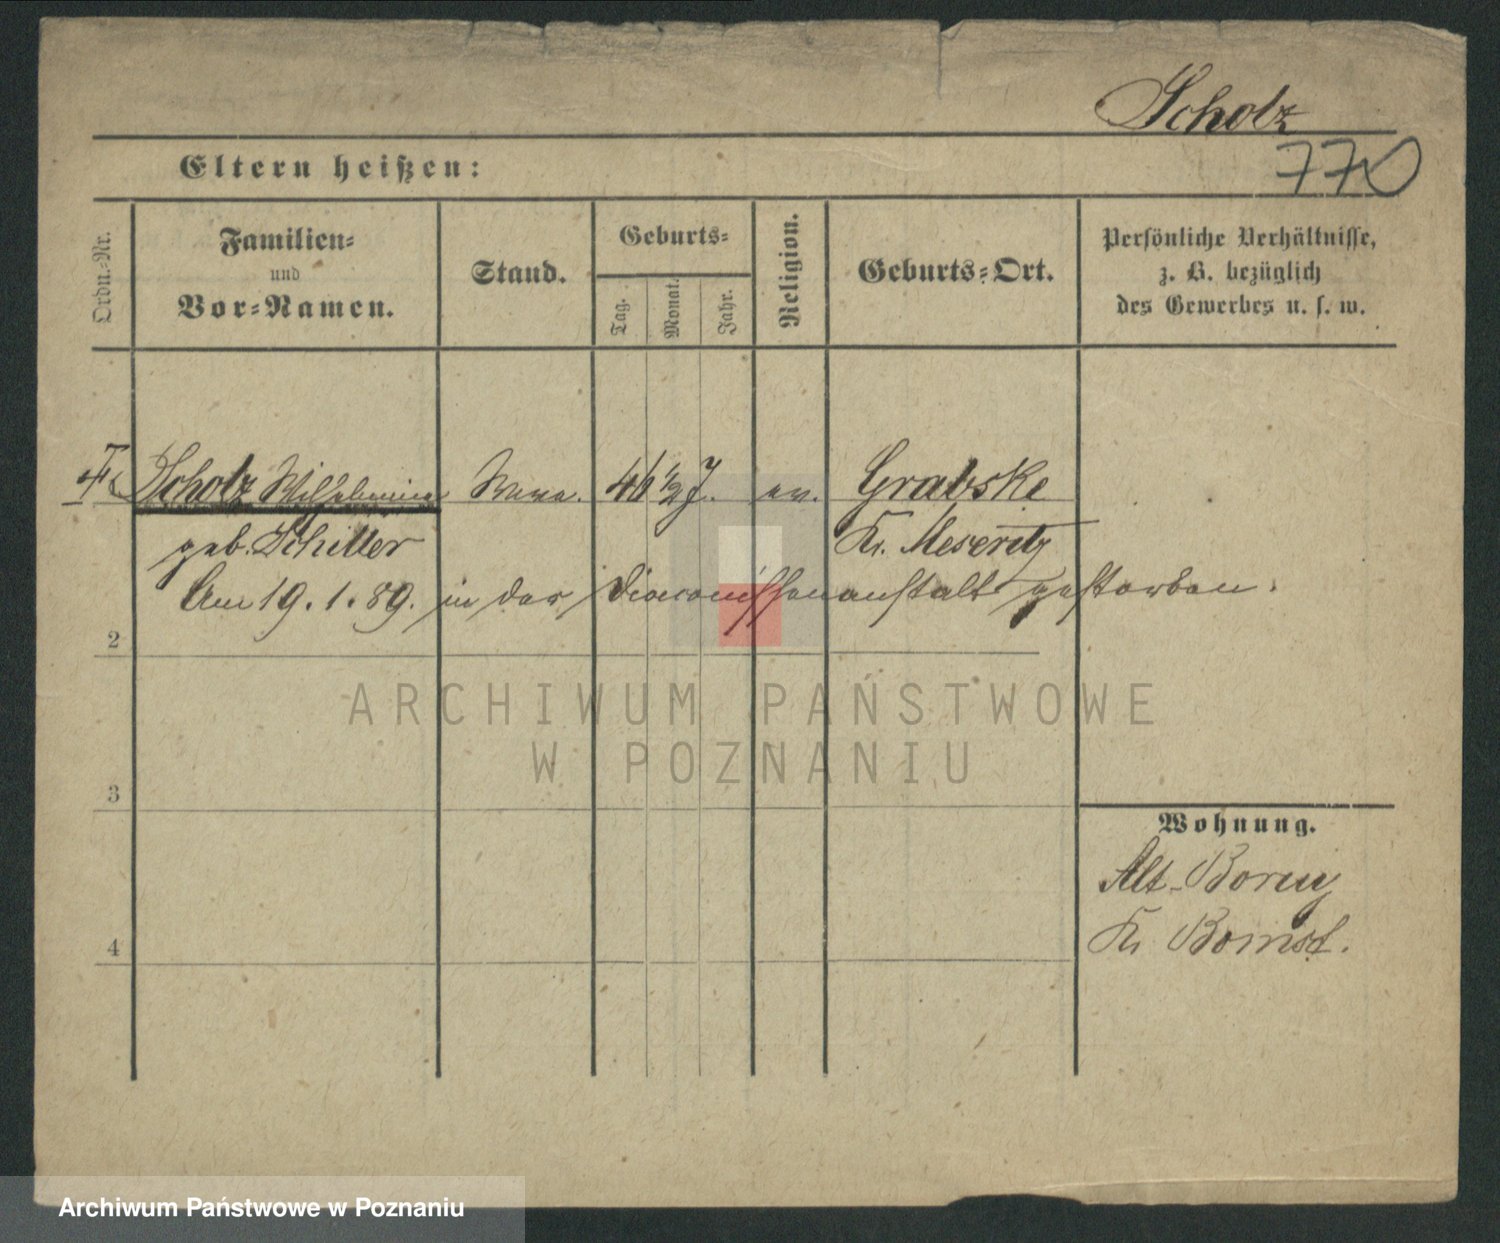 Scholz
Eltern heißen:
770
Ordn.-Nr.
Familien-
und
Vor-Namen.
Stand.
Geburts-
Tag.
Monat.
Jahr.
Religion.
Geburts-Ort.
Persönliche Verhältnisse,
z. B. bezüglich
des Gewerbes u. s. w.
Scholz Wilhelmine
46 1/2 J.
ev.
Grabske
geb. Schiller
Kr. Meseritz
Am 19. 1. 89. in der Diaconissenanstalt gestorben.
2
3
4
Wohnung.
Alt-Boruy
Kr. Bomst.
ARCHIWUM PAŃSTWOWE
W POZNANIU
Archiwum Państwowe w Poznaniu